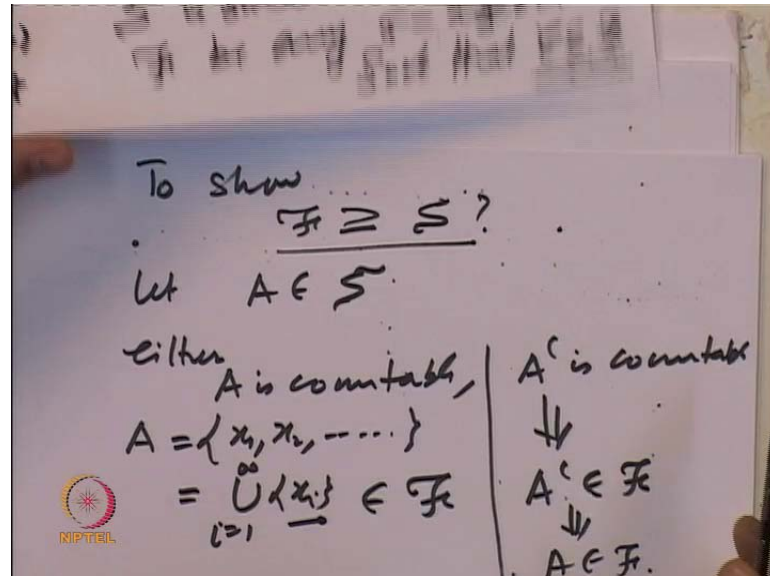 be any
To show
ℱ ⊇ S ?
Let A ∈ S.
either
A is countable,
A = {x₁, x₂, -----}
= ∞⋃i=1 {xᵢ} ∈ ℱ
Aᶜ is countable
⇓
Aᶜ ∈ ℱ
⇓
A ∈ ℱ.
NPTEL